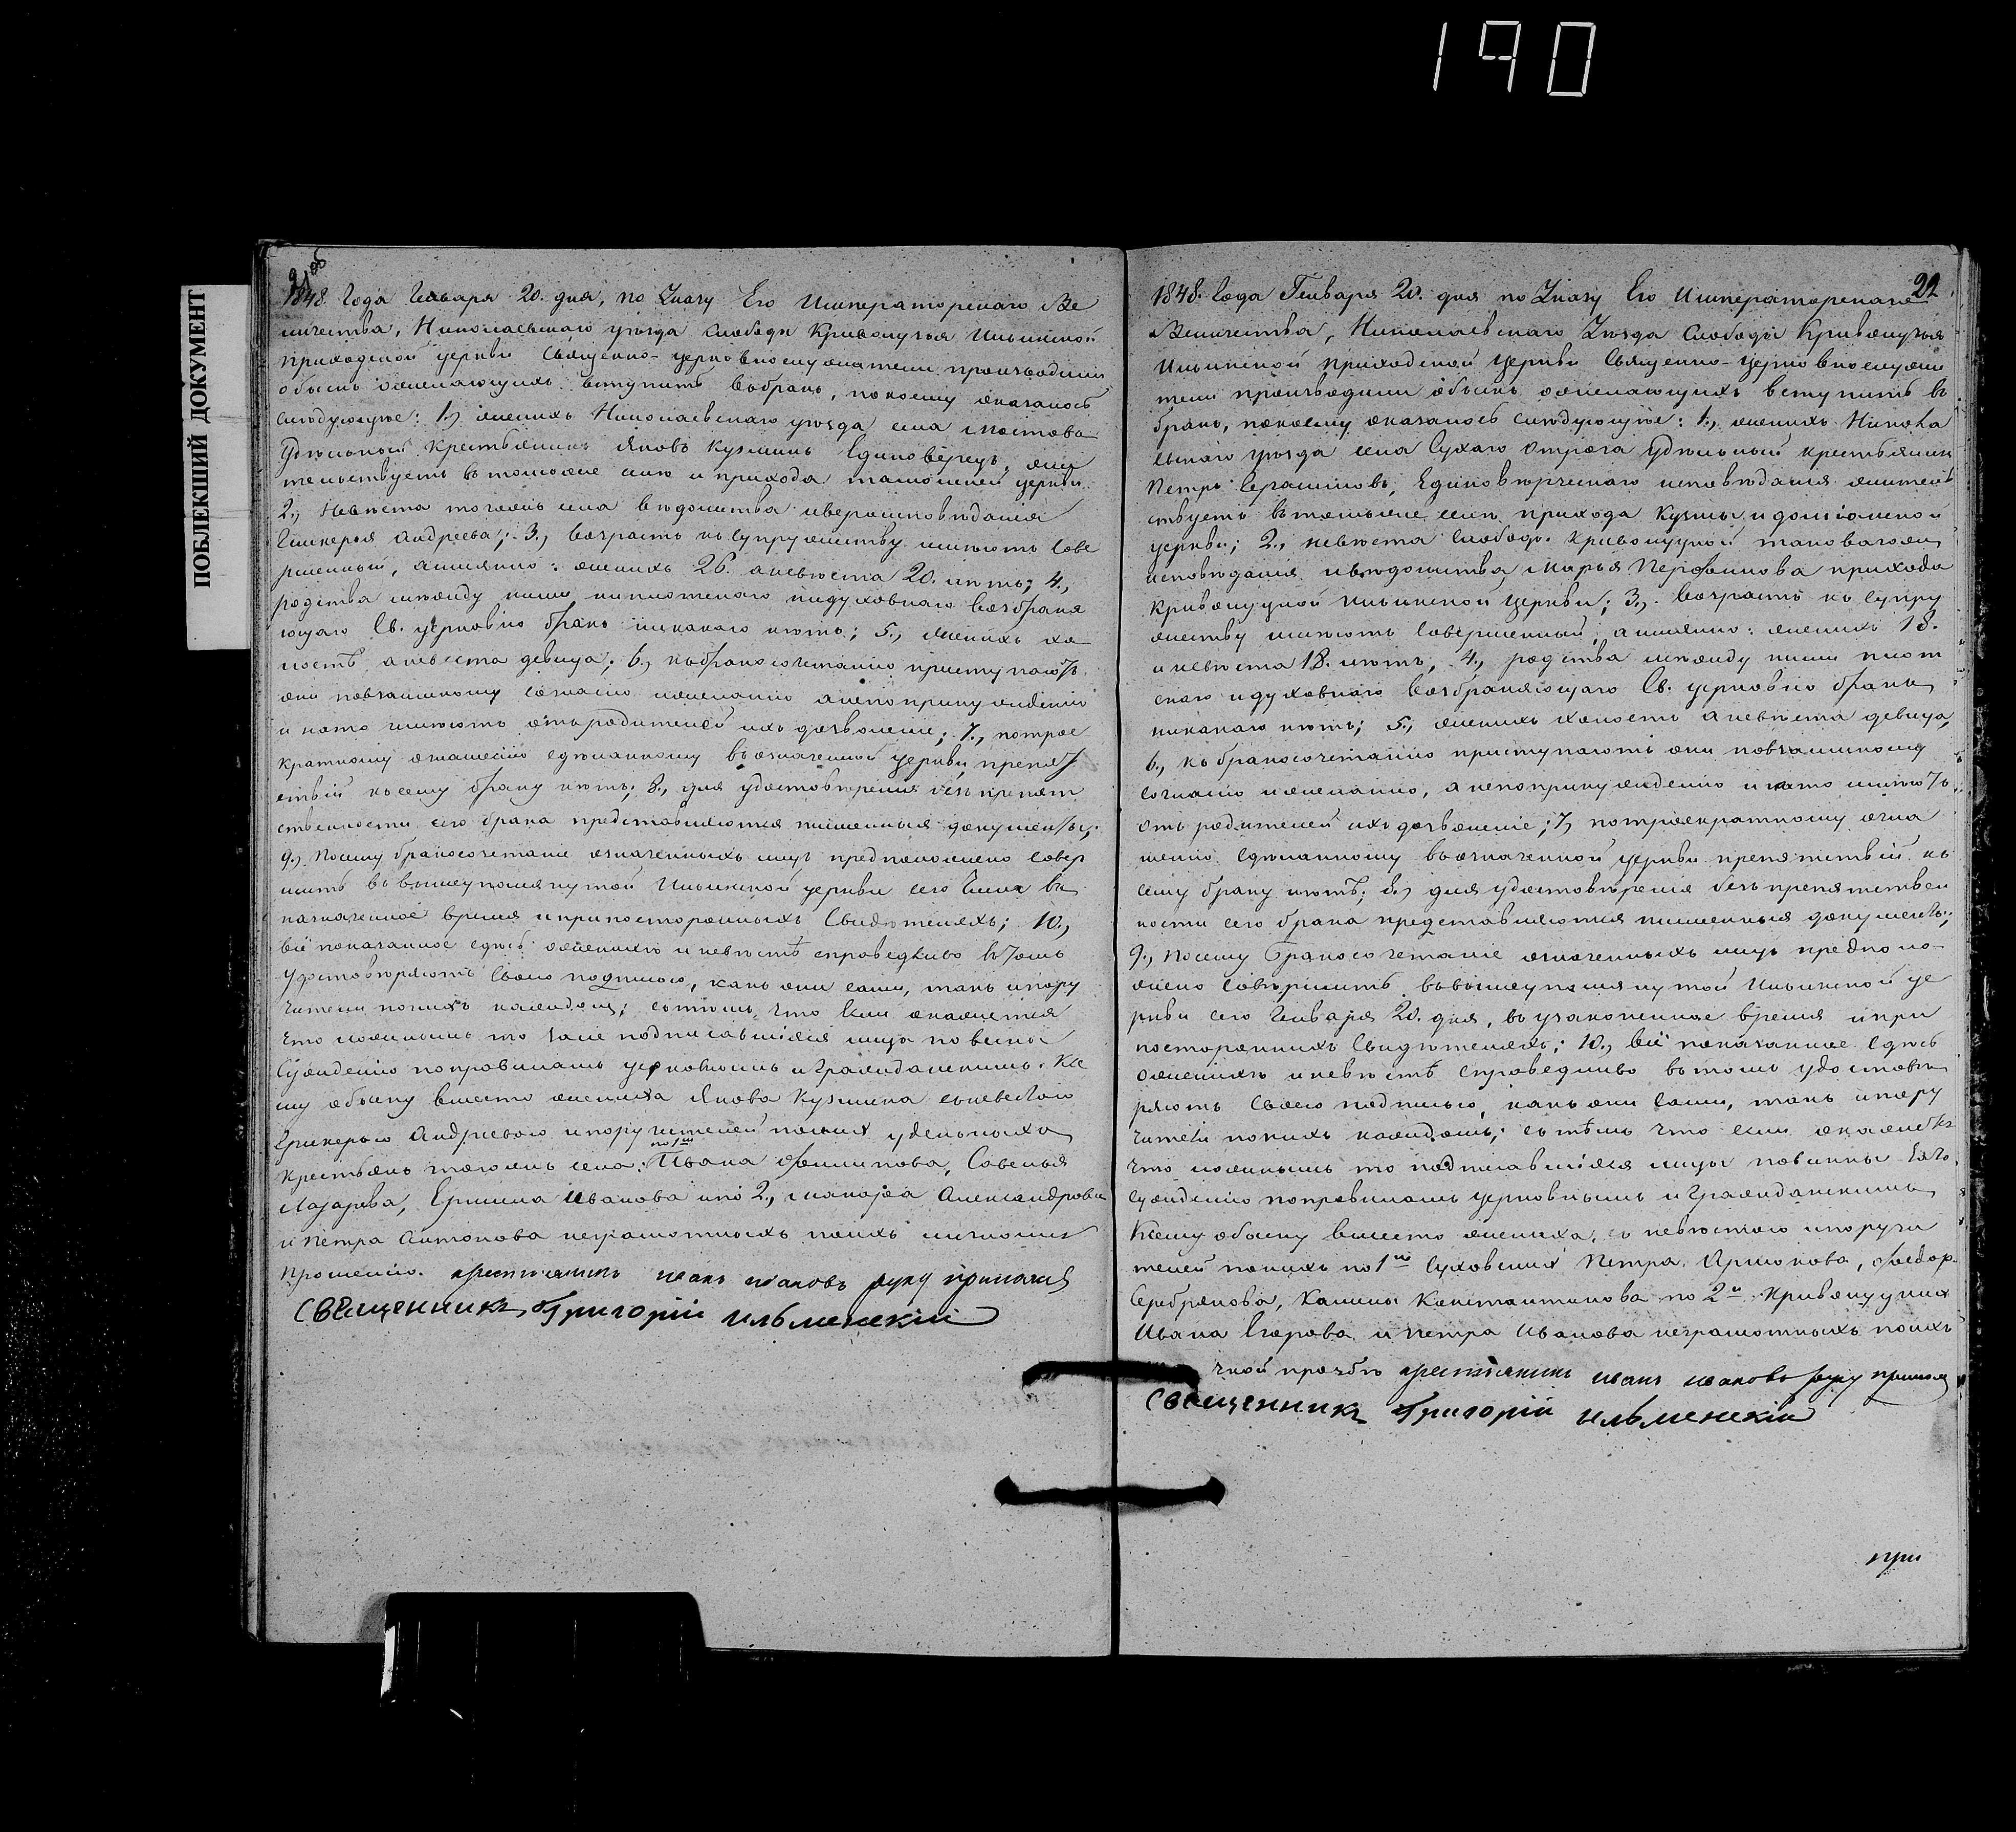 190
ПОБЛЕКШИЙ ДОКУМЕНТ
21об
1848. Года Генваря 20. дня, по Указу Его Императорскаго Ве
личества, Николаевскаго уѣзда слободы Криволучья Ильинской
приходской церкви Священно-церковнослужатели производили
обыскъ желающихъ вступить вбракъ, покоему оказалось
слѣдующее: 1., женихъ Николаевскаго уѣзда села Мостова
Удѣльный крестьянинъ Яковъ Кузминъ Единоверецъ, жи
тельствуетъ втомже селе и прихода тамошней церкви
2., Невѣста тогожъ села вѣдомства ивероисповѣданія
Гликерья Андреева; 3., возрастъ ксупружеству имѣютъ Сове
ршенный, аимянно: женихъ 26. аневѣста 20. лѣтъ; 4.,
родства между ними ниплотскаго нидуховнаго возбраня
ющаго Св. церковію бракъ никакаго нѣтъ; 5., Женихъ хо
лостъ аневеста девица; 6., кбракосочетанію приступаютъ
они повзаимному согласію ижеланію анепопринужденію
и нато имѣютъ отъродителей ихъ дозволеніе; 7., потрое
кратному оглашенію сдѣланному возначенной церкви препят
ствій ксему браку нѣтъ; 8., для удостовѣренія безпрепят
ственности сего брака представляются письменныя документы;
9., Посему бракосочетаніе означенныхъ лицъ предположено совер
шить ввышеупомянутой Ильинской церкви сего числа въ
назначенное время ипри постороннихъ Свидѣтеляхъ; 10.,
всё показанное здѣсь оженихѣ и невѣстѣ справедливо втомъ
Удостовѣряютъ Своею подписью, какъ они сами, такъ ипору
чители понихъ каждомъ; стѣмъ, что если окажется
что ложнымъ то самое подписавшіяся лица повины
Сужденію поправиламъ церковнымъ и гражданскимъ. Ксе
му обыску вместо жениха Якова Кузмина сневестою
Гликерьею Андреевою ипоручителей понихъ удельныхъ
крестьянъ тогожъ села: по 1мъ Ивана Филипова, Савелья
Лазарева, Ермила Иванова ипо 2., Макара Александрова
и Петра Антонова неграмотныхъ поихъ личному
прошенію. крестьянинъ иванъ ивановъ руку приложилъ
Священникъ Григорій Ильменскій
22
1848. Года Генваря 20. дня по Указу Его Императорскаго
Величества, Николаевскаго Уѣзда Слободы Криволучья
Ильинской Приходской церкви Священно-церковнослужи
тели производили обыскъ желающихъ вступить въ
бракъ, покоему оказалось слѣдующее: 1., женихъ Никола
евскаго уѣзда села Сухаго Отрога Удѣльный крестьянинъ
Петръ Герасимовъ, Единовѣрческаго исповѣданія жители
ствуетъ втомже селе прихода Кузмы идоміанской
церкви; 2., невѣста Слободы Криволуцкой таковагожъ
исповѣданія ивѣдомства Марья Перфилова прихода
Криволуцкой Ильинской церкви; 3., возрастъ ксупру
жеству имѣютъ совершенный, аимянно: женихъ 18.
иневѣста 18. лѣтъ; 4., родства между ними плот
скаго идуховнаго возбраняющаго Св. церковію бракъ
никакаго нѣтъ; 5., женихъ холостъ аневѣста девица,
6., кбракосочетанію приступаютъ они повзаимному
согласію ижеланію, анепопринужденію инато имѣютъ
отъ родителей ихъ дозволеніе; 7., потроекратному огла
шенію сдѣланному возначенной церкви препятствій къ
сему браку нѣтъ; 8., для удостовѣренія безпрепятствен
ности сего брака представляются письменныя документы;
9., Посему бракосочетаніе означенныхъ лицъ предполо
жено совершить ввышеупомянутой Ильинской це
ркви сего Генваря 20. дня, вузаконенное время ипри
постороннихъ Свидѣтеляхъ; 10., всё показанное Сдѣсь
оженихѣ иневѣстѣ справедливо втомъ удостовѣ
ряютъ своею подписью, какъ они сами, такъ ипору
чители понихъ каждомъ; стѣмъ что если окажется
что ложнымъ то подписавшіяся лицы повинны
сужденію поправиламъ церковнымъ и гражданскимъ
Ксему обыску вместо жениха, съ невѣстою ипоручи
телей понихъ по 1мъ Суховскихъ Петра Аршонова, Федора
Серебрякова, Калины Константинова по 2й Криволуцкихъ
Ивана Егорова и Петра Иванова неграмотныхъ поихъ
чной прозбѣ крестьянинъ иванъ ивановъ руку прилож
Священникъ Григорій Ильменскій
при